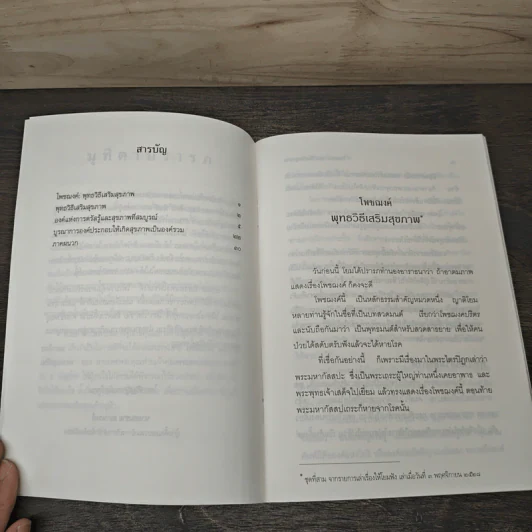 สารบัญ
โพชฌงค์: พุทธวิธีเสริมสุขภาพ
พุทธวิธีเสริมสุขภาพ ๑
องค์แห่งการตรัสรู้และสุขภาพที่สมบูรณ์ ๒
บูรณาการองค์ประกอบให้เกิดสุขภาพเป็นองค์รวม ๕
ภาคผนวก
โพชฌงค์
พุทธวิธีเสริมสุขภาพ*
วันก่อนนี้ โยมได้ปรารภท่านขออาราธนาว่า ถ้าอาตมภาพ
แสดงเรื่องโพชฌงค์ ก็คงจะดี
โพชฌงค์นี้ เป็นหลักธรรมสำคัญหมวดหนึ่ง ญาติโยม
หลายท่านรู้จักในชื่อที่เป็นบทสวดมนต์ เรียกว่าโพชฌงคปริตร
และนับถือกันมาว่า เป็นพุทธมนต์สำหรับสวดสาธยาย เพื่อให้คน
ป่วยได้สดับตรับฟังแล้วจะได้หายโรค
ที่เชื่อกันอย่างนี้ ก็เพราะมีเรื่องมาในพระไตรปิฎกเล่าว่า
พระมหากัสสปะ ซึ่งเป็นพระเถระผู้ใหญ่ท่านหนึ่งเคยอาพาธ และ
พระพุทธเจ้าเสด็จไปเยี่ยม แล้วทรงแสดงเรื่องโพชฌงค์นี้ ตอนท้าย
พระมหากัสสปเถระก็หายจากโรคนั้น
* ชุดที่สาม จากรายการเล่าเรื่องให้โยมฟัง เล่าเมื่อวันที่ ๓ พฤศจิกายน